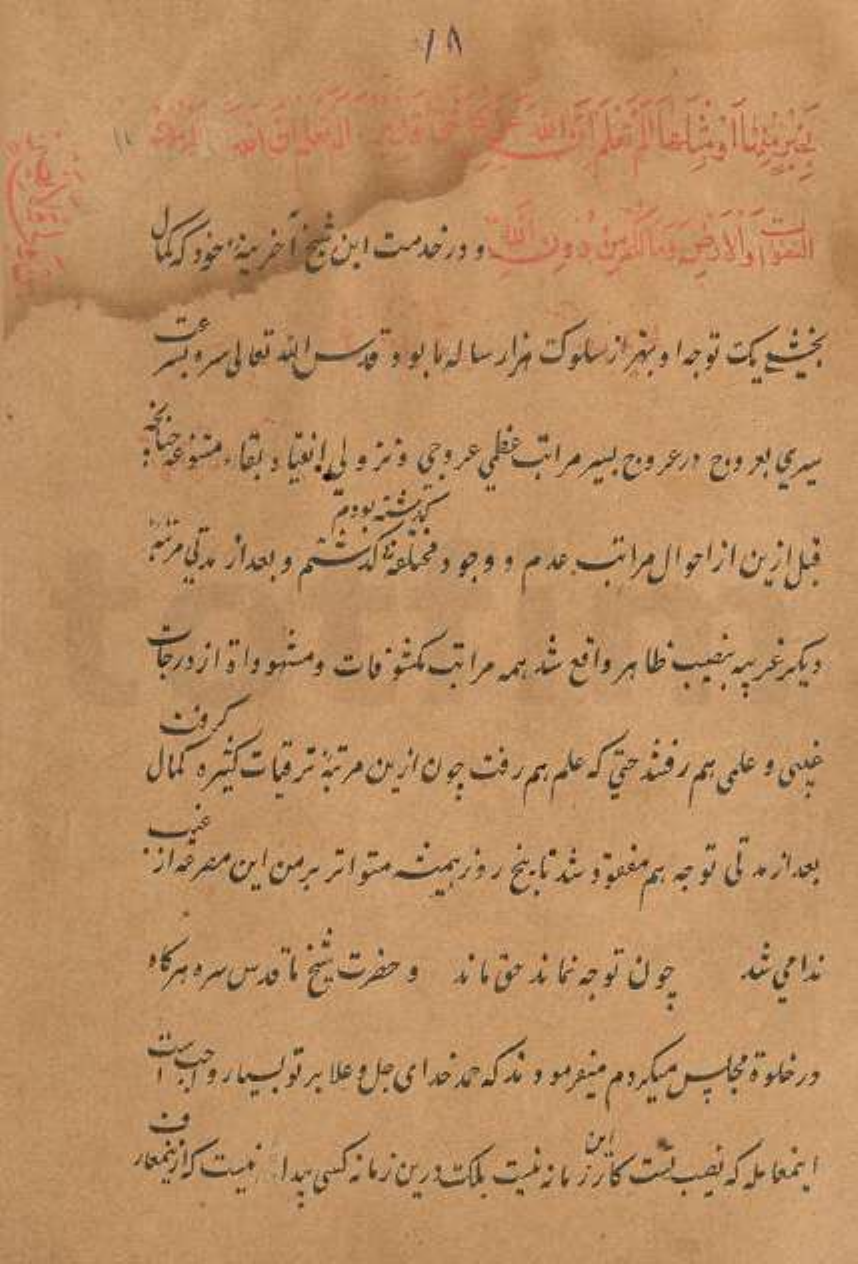 ۱۸
بِخَيْرٍ مِنْهَا أَوْ مِثْلِهَا أَلَمْ تَعْلَمْ أَنَّ اللهَ عَلَى كُلِّ شَيْءٍ قَدِيرٌ الم تعلم ان الله له ملك
السموات والارض وما لكم من دون الله و در خدمت این شیخ آخرینهٔ خود که کمال
بخشی یک توجه او بهتر از سلوک هزار ساله ما بود قدس الله تعالی سره بسرعت
سیری بعروج در عروج بسیر مراتب عظمی عروجی و نزولی و بقاء متنوعه چنانچه
قبل ازین از احوال مراتب عدم و وجود مختلفهٔ گذشتم و بعد از مدتی مرتبهٔ
گذشته بودم
دیگر غریبه بنصیب ظاهر واقع شد همه مراتب مکشوفات و مشهوداة از درجات
غیبی و علمی هم رفتند حتی که علم هم رفت چون ازین مرتبهٔ ترقیات کثیره کمال کردن
بعد از مدتی توجه هم مفقود شد تا پنج روز همیشه متواتر بر من این مصرعه از غیب
ندا می شد چون توجه نماند حق ماند و حضرت شیخ ما قدس سره هرگاه
در خلوة مجلس میکردم میفرمودند که حمد خدای جل و علا بر تو بسیار واجبست
اینمعامله که نصیب تست کار این زمانه نیست بلکه درین زمانه کسی پیدا نیست که ازینمعارف